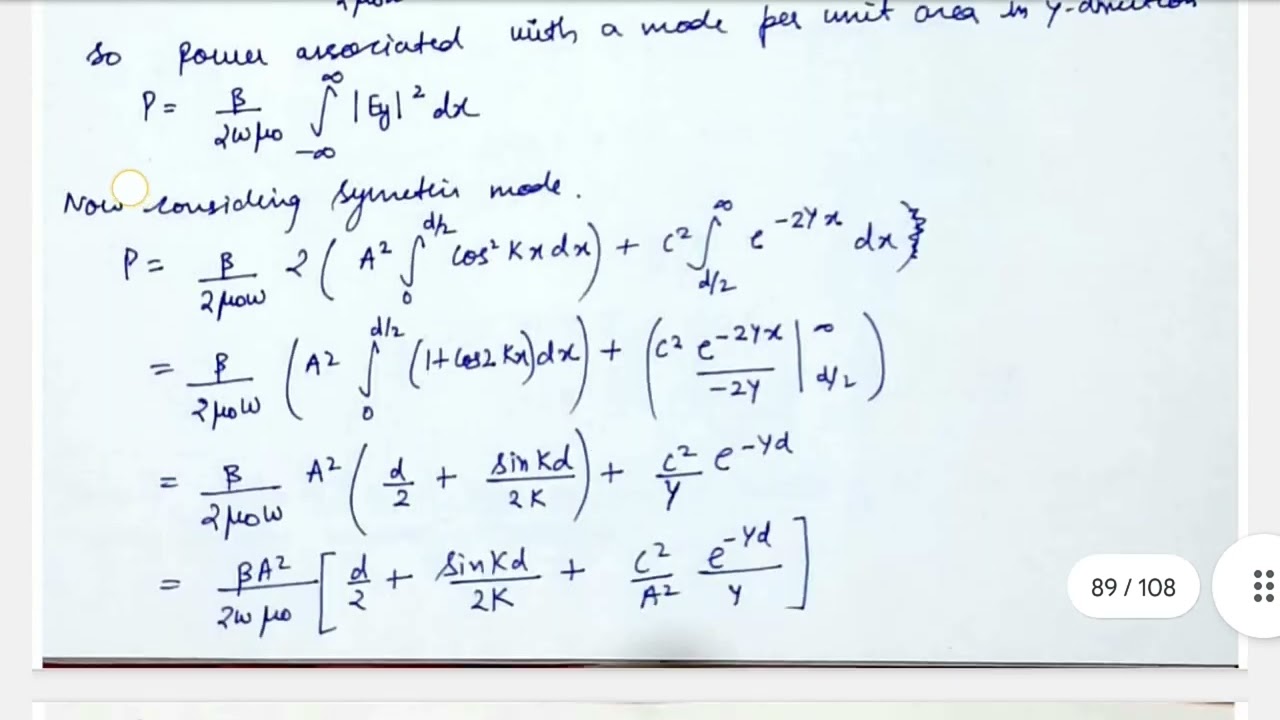 So power associated with a mode per unit area in y-direction
P = β/2ωμ0 ∫_{-∞}^{∞} |Ey|² dx
Now considing Symetric mode.
P = β/2μ0ω 2( A² ∫_0^{d/2} Cos² Kx dx) + C² ∫_{d/2}^{∞} e^{-2γx} dx}
= β/2μ0ω (A² ∫_0^{d/2} (1+Cos2Kx)dx) + (C² e^{-2γx}/-2γ |_{d/2}^{∞})
= β/2μ0ω A² (d/2 + SinKd/2K) + C²/γ e^{-γd}
= βA²/2ωμ0 [d/2 + SinKd/2K + C²/A² e^{-γd}/γ]
89 / 108